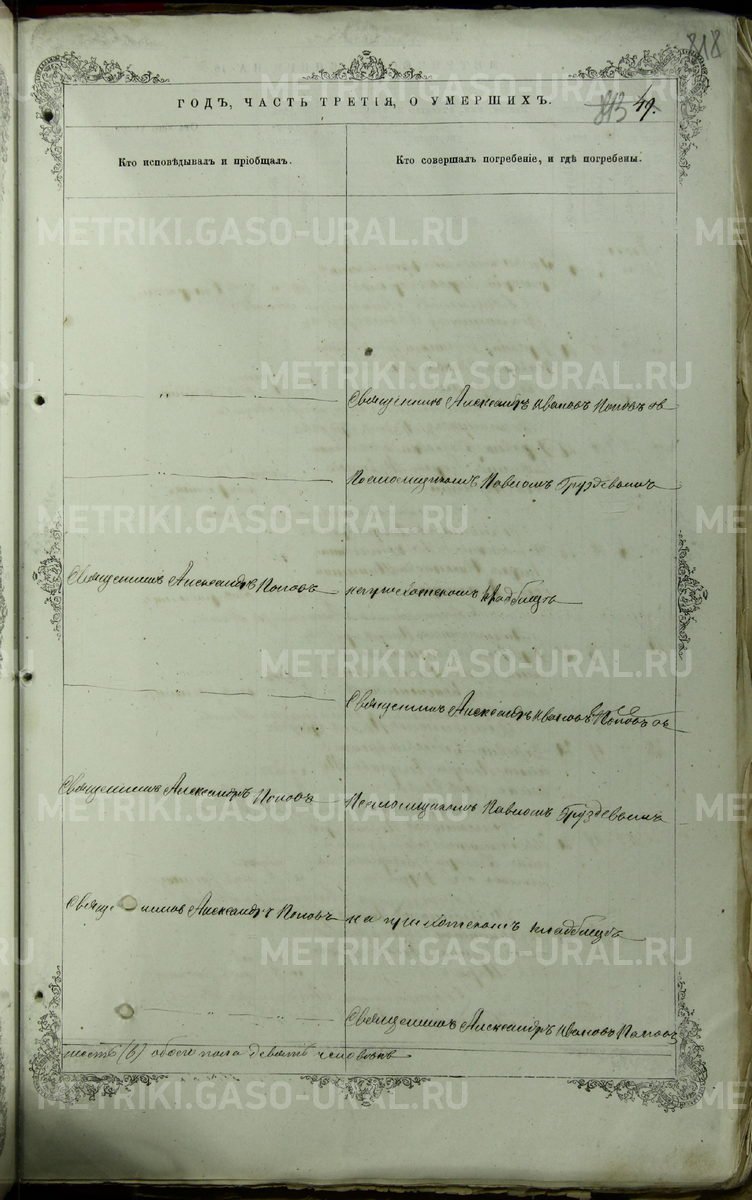 818
ГОДЪ, ЧАСТЬ ТРЕТІЯ, О УМЕРШИХЪ.
813 49.
Кто исповѣдывалъ и пріобщалъ.
Кто совершалъ погребеніе, и гдѣ погребены.
Священникъ Александръ Ивановъ Поповъ съ
Псаломщикомъ Павломъ Груздевымъ
Священникъ Александръ Поповъ
на приходскомъ кладбищѣ
Священникъ Александръ Ивановъ Поповъ съ
Священникъ Александръ Поповъ
Псаломщикомъ Павломъ Груздевымъ
Священникъ Александръ Поповъ
на приходскомъ кладбищѣ
Священникъ Александръ Ивановъ Поповъ
шесть (6) обоего пола девять человѣкъ
METRIKI.GASO-URAL.RU